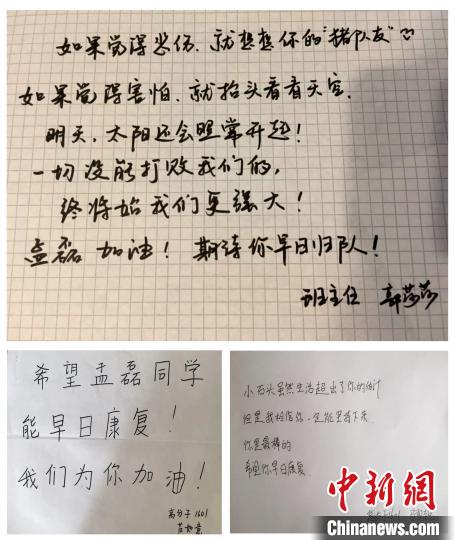 如果觉得悲伤，就想想你的“猪队友”
如果觉得害怕，就抬头看看天空，
明天，太阳还会照常升起！
一切没能打败我们的，
终将给我们更强大！
孟磊 加油！期待你早日归队！
班主任 郭莎莎
希望孟磊同学
能早日康复！
我们为你加油！
高分子1601
小石头虽然生活超出了你的预计
但是我相信你一定能坚持下来
你是最棒的
希望你早日康复
中新网
Chinanews.com